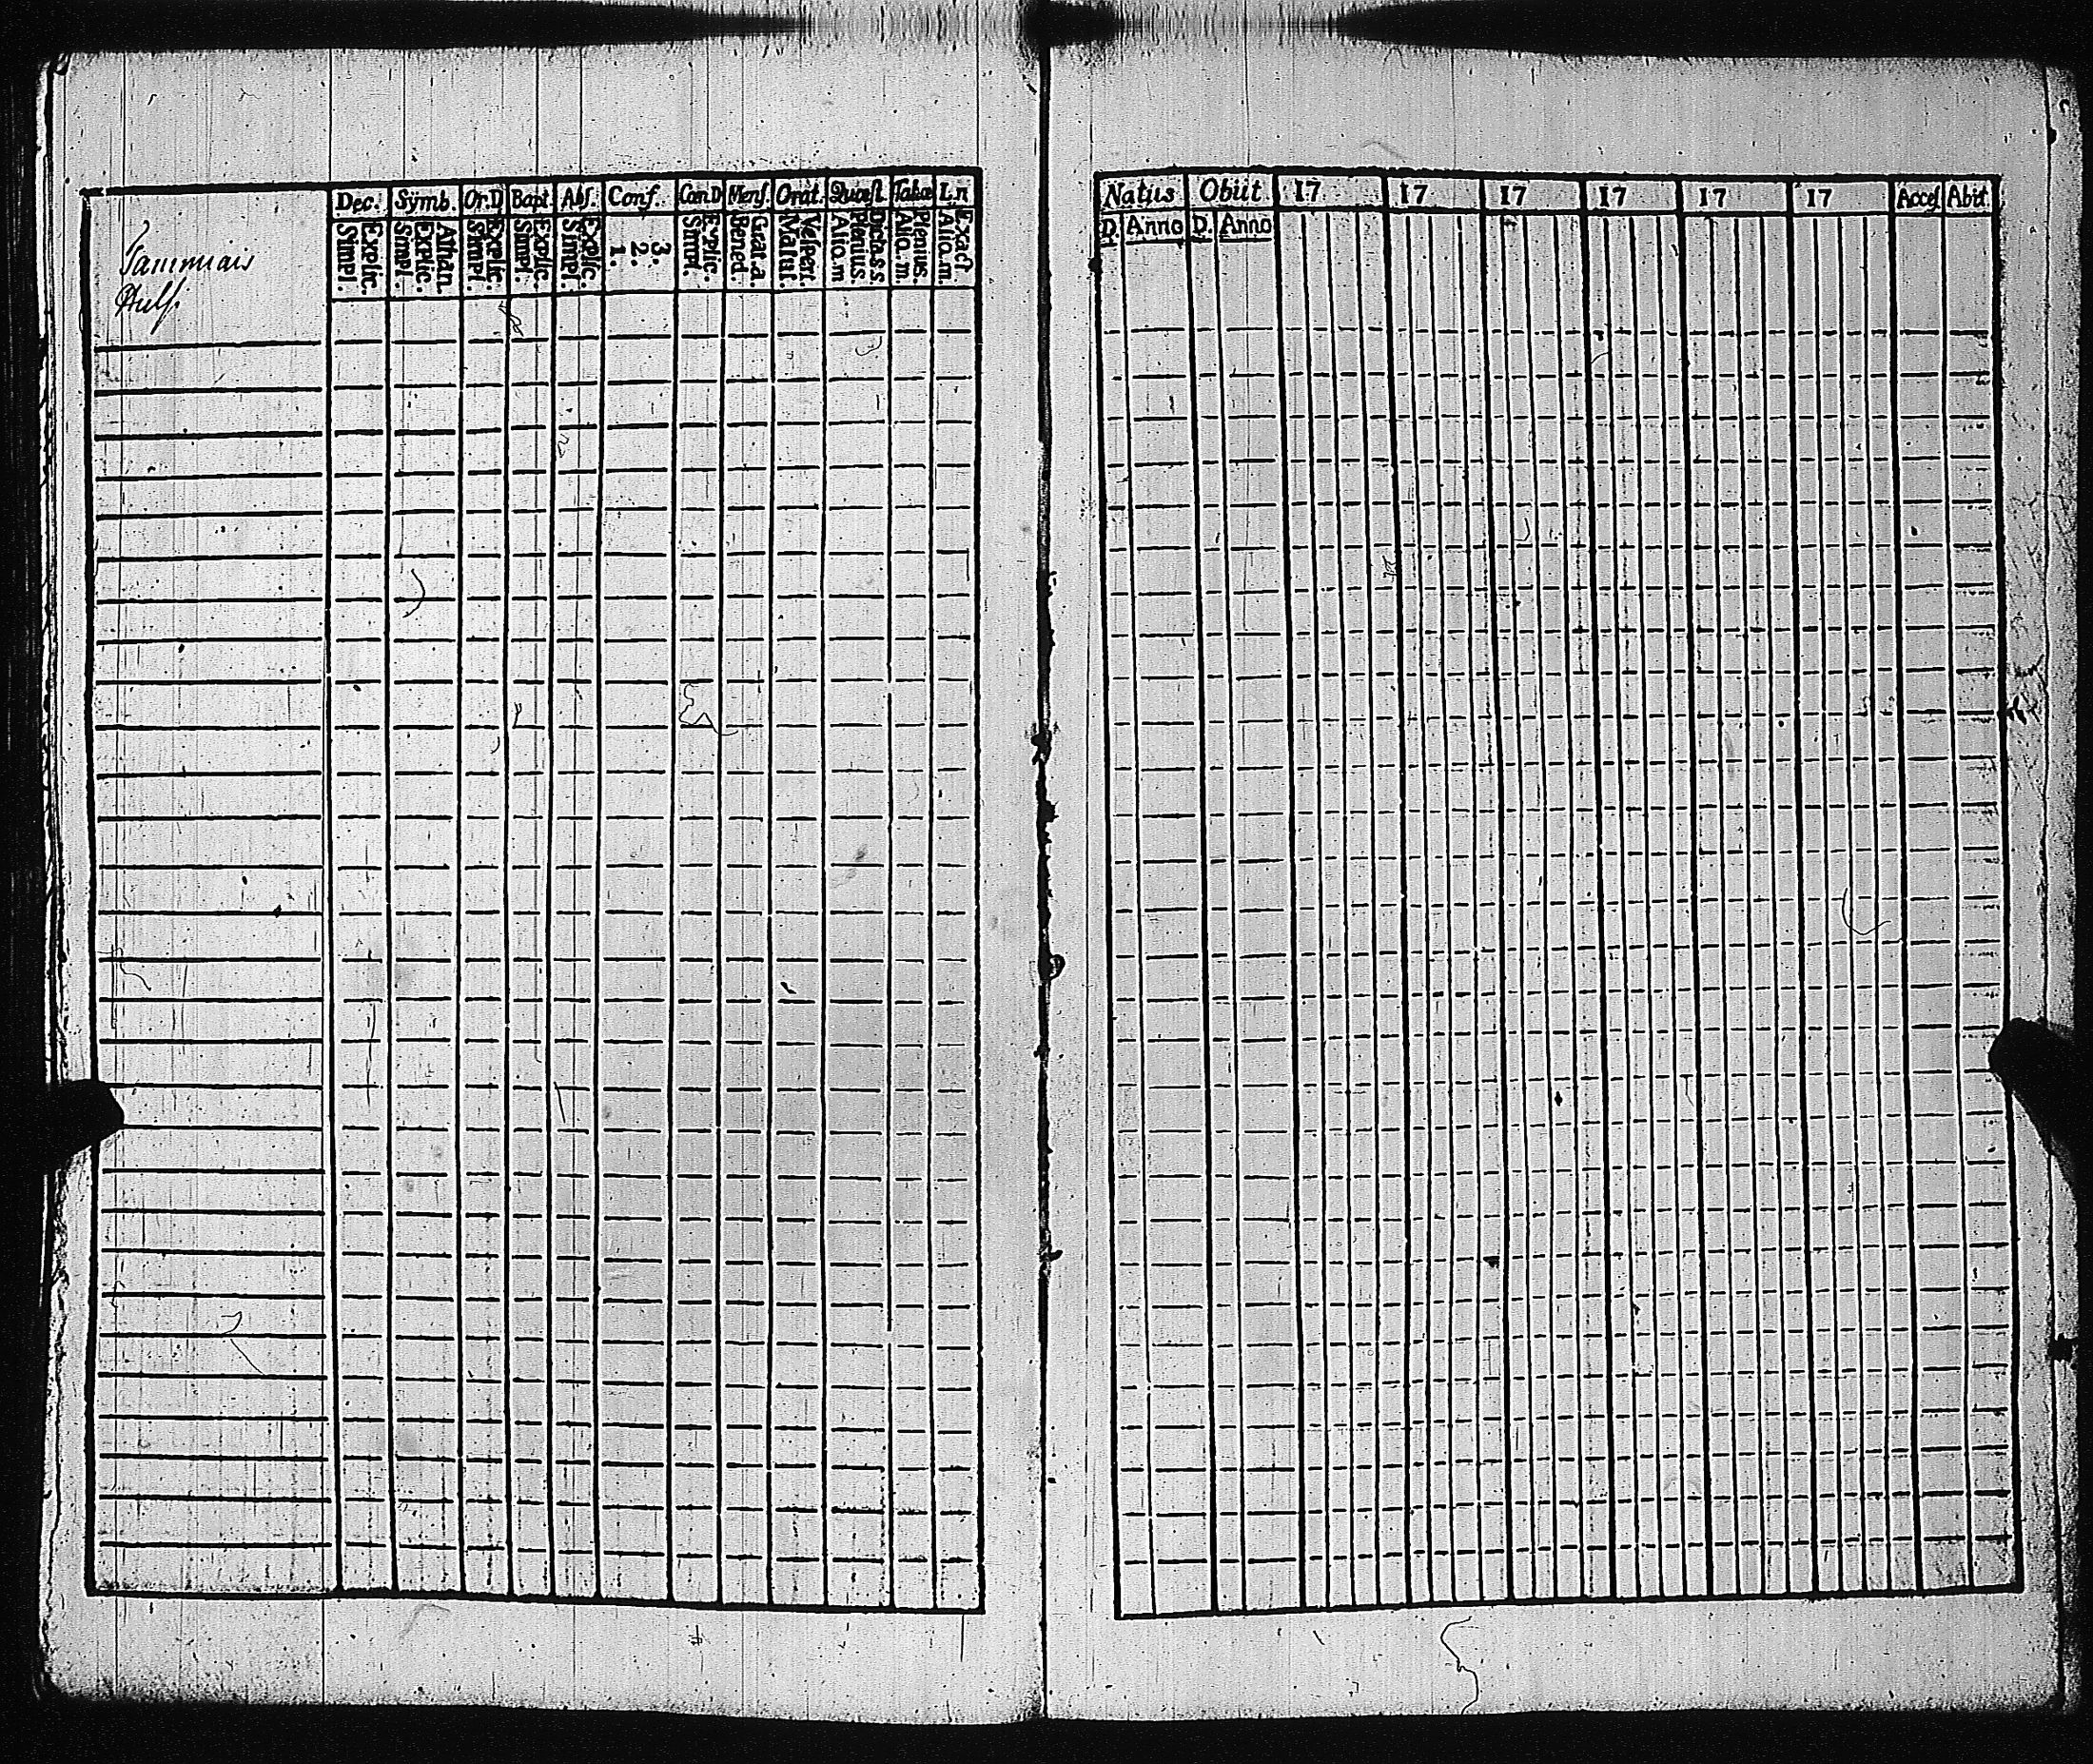 Dec. Symb. Or.D Bapt. Abs. Conf. Can.D Mens. Orat. Quæst. Tabæ L.n
Explic. Simpl.
Athan. Explic. Simpl.
Explic. Simpl.
Explic. Simpl.
Explic. Simpl.
3. 2. 1.
Explic. Simpl.
Grat.a. Bened.
Vesper. Matut.
Dicta.s s Plenius Alio.m
Plenius. Aliq.m
Exact Aliq.m
Natus Obiit 17 17 17 17 17 17 Acces Abit
D. Anno D. Anno